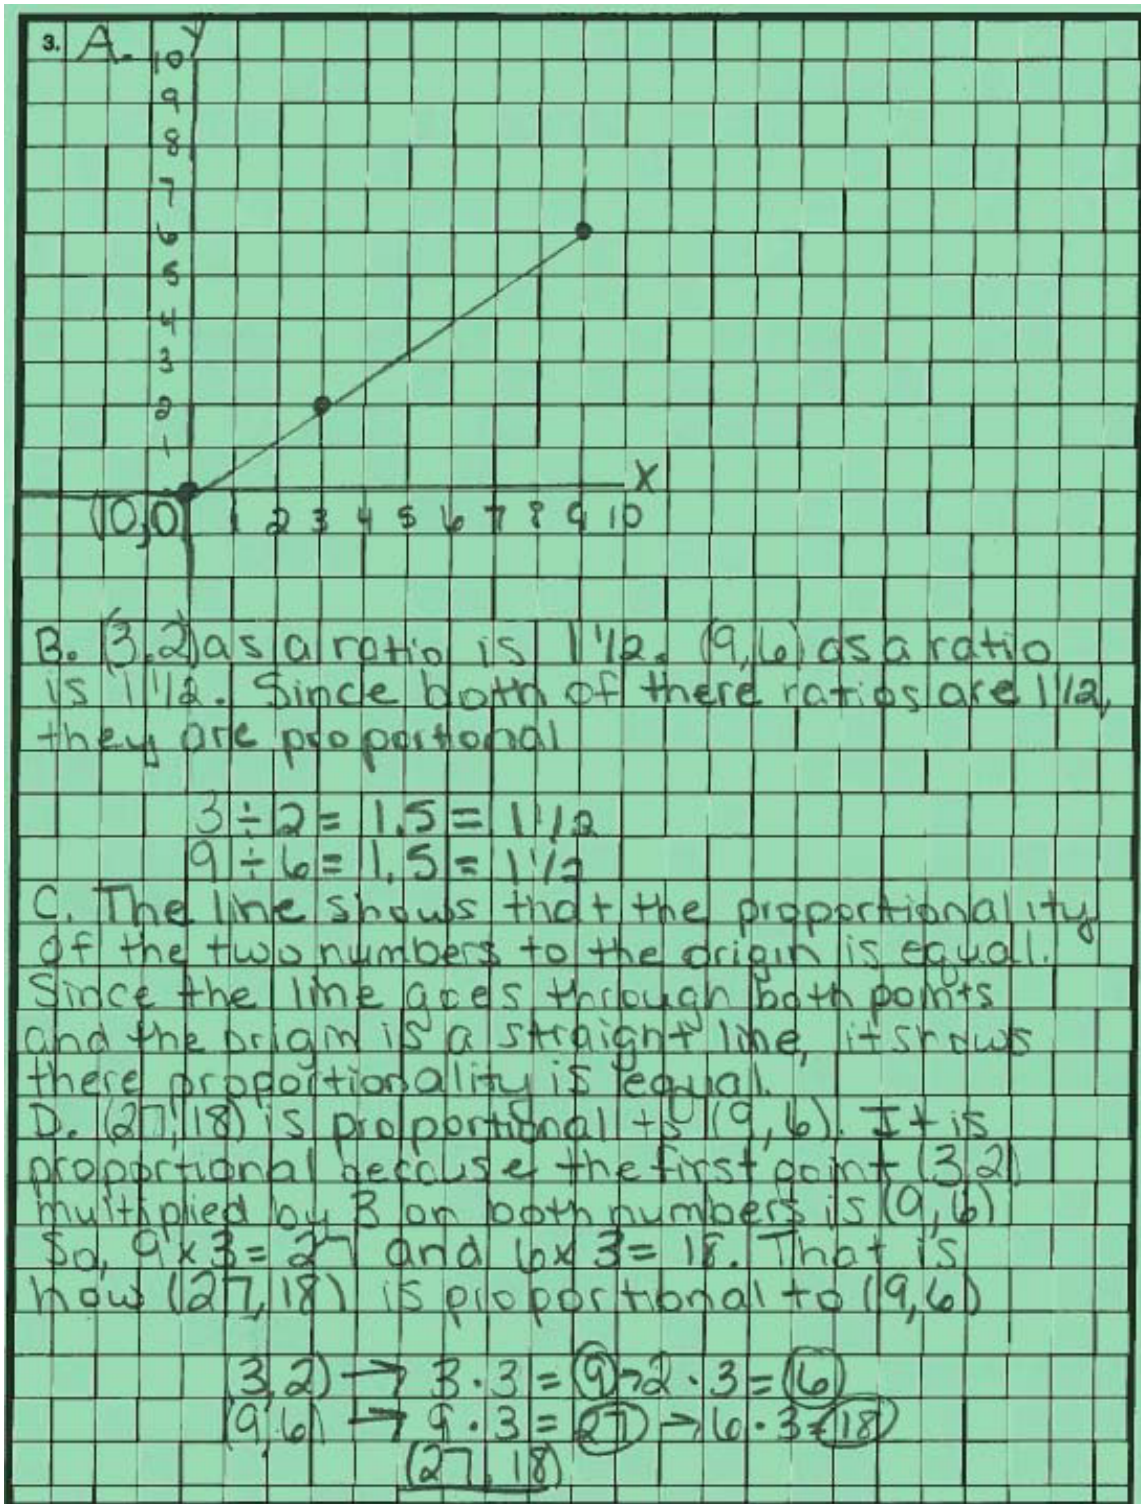 3. A. y
10
9
8
7
6
5
4
3
2
1
x
(0,0) 1 2 3 4 5 6 7 8 9 10
B. (3,2) as a ratio is 1 1/2. (9,6) as a ratio
is 1 1/2. Since both of there ratios are 1 1/2,
they are proportional
3 ÷ 2 = 1.5 = 1 1/2
9 ÷ 6 = 1.5 = 1 1/2
C. The line shows that the proportionality
of the two numbers to the origin is equal.
Since the line goes through both points
and the origin is a straight line, it shows
there proportionality is equal.
D. (27,18) is proportional to (9,6). It is
proportional because the first point (3,2)
multiplied by 3 on both numbers is (9,6)
So, 9x3=27 and 6x3=18. That is
how (27,18) is proportional to (9,6)
(3,2) → 3·3=9→2·3=6
(9,6) → 9·3=27→6·3=18
(27,18)